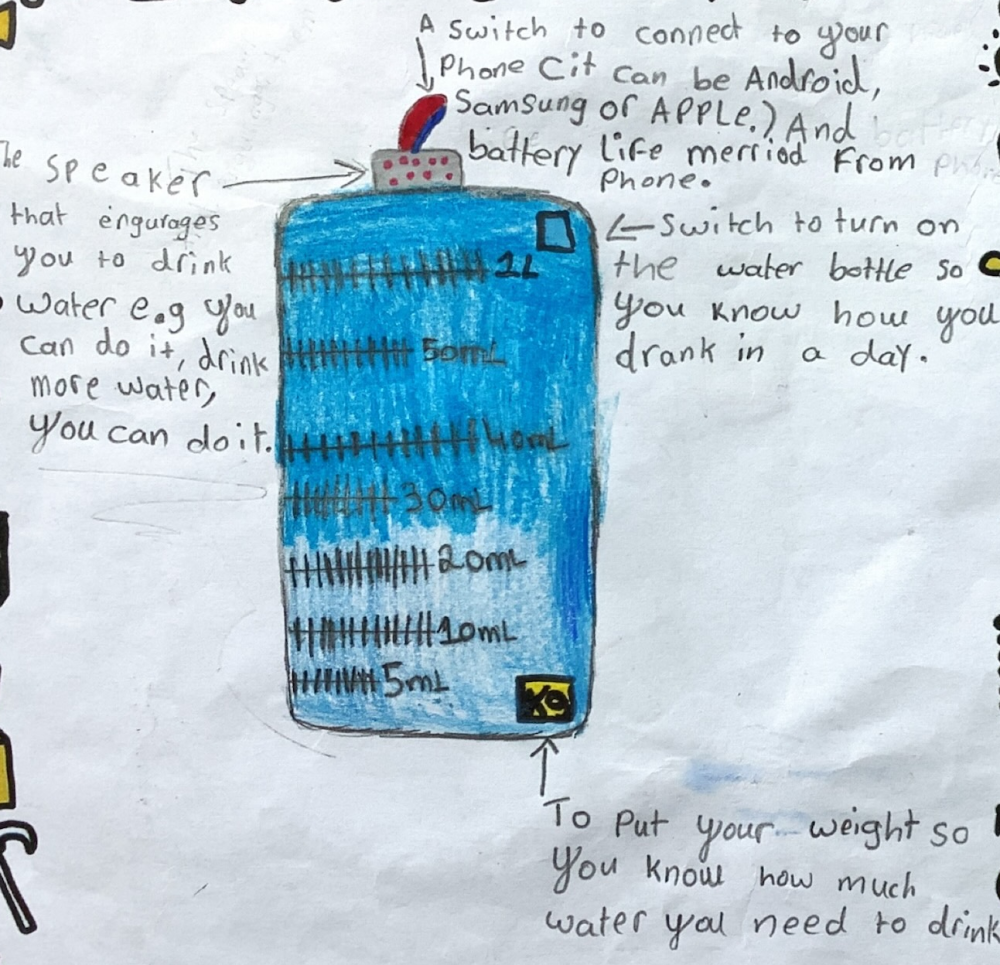 A Switch to connect to your
Phone Cit can be Android,
Samsung or APPLE.) And
battery life merriod From
Phone.
The Speaker
that engurages
you to drink
water e.g you
can do it, drink
more water,
you can do it.
Switch to turn on
the water bottle so
you know how you
drank in a day.
1L
50mL
40mL
30mL
20mL
10mL
5mL
KG
To Put your weight so
you know how much
water you need to drink